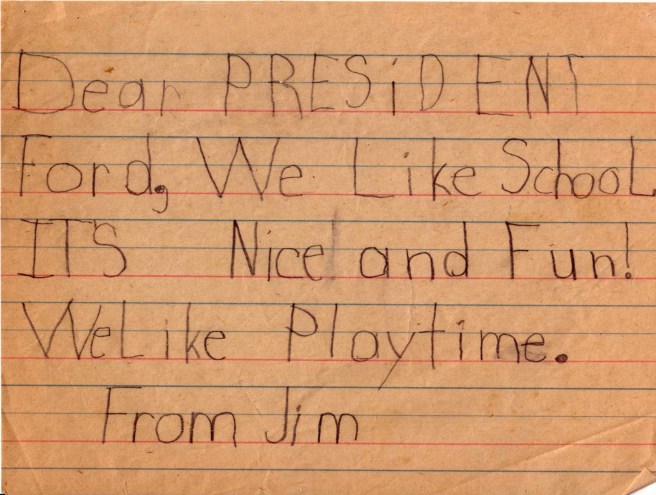 Dear PRESiDENT
Ford, We Like SchooL
ITS Nice and Fun!
WeLike Playtime.
From Jim